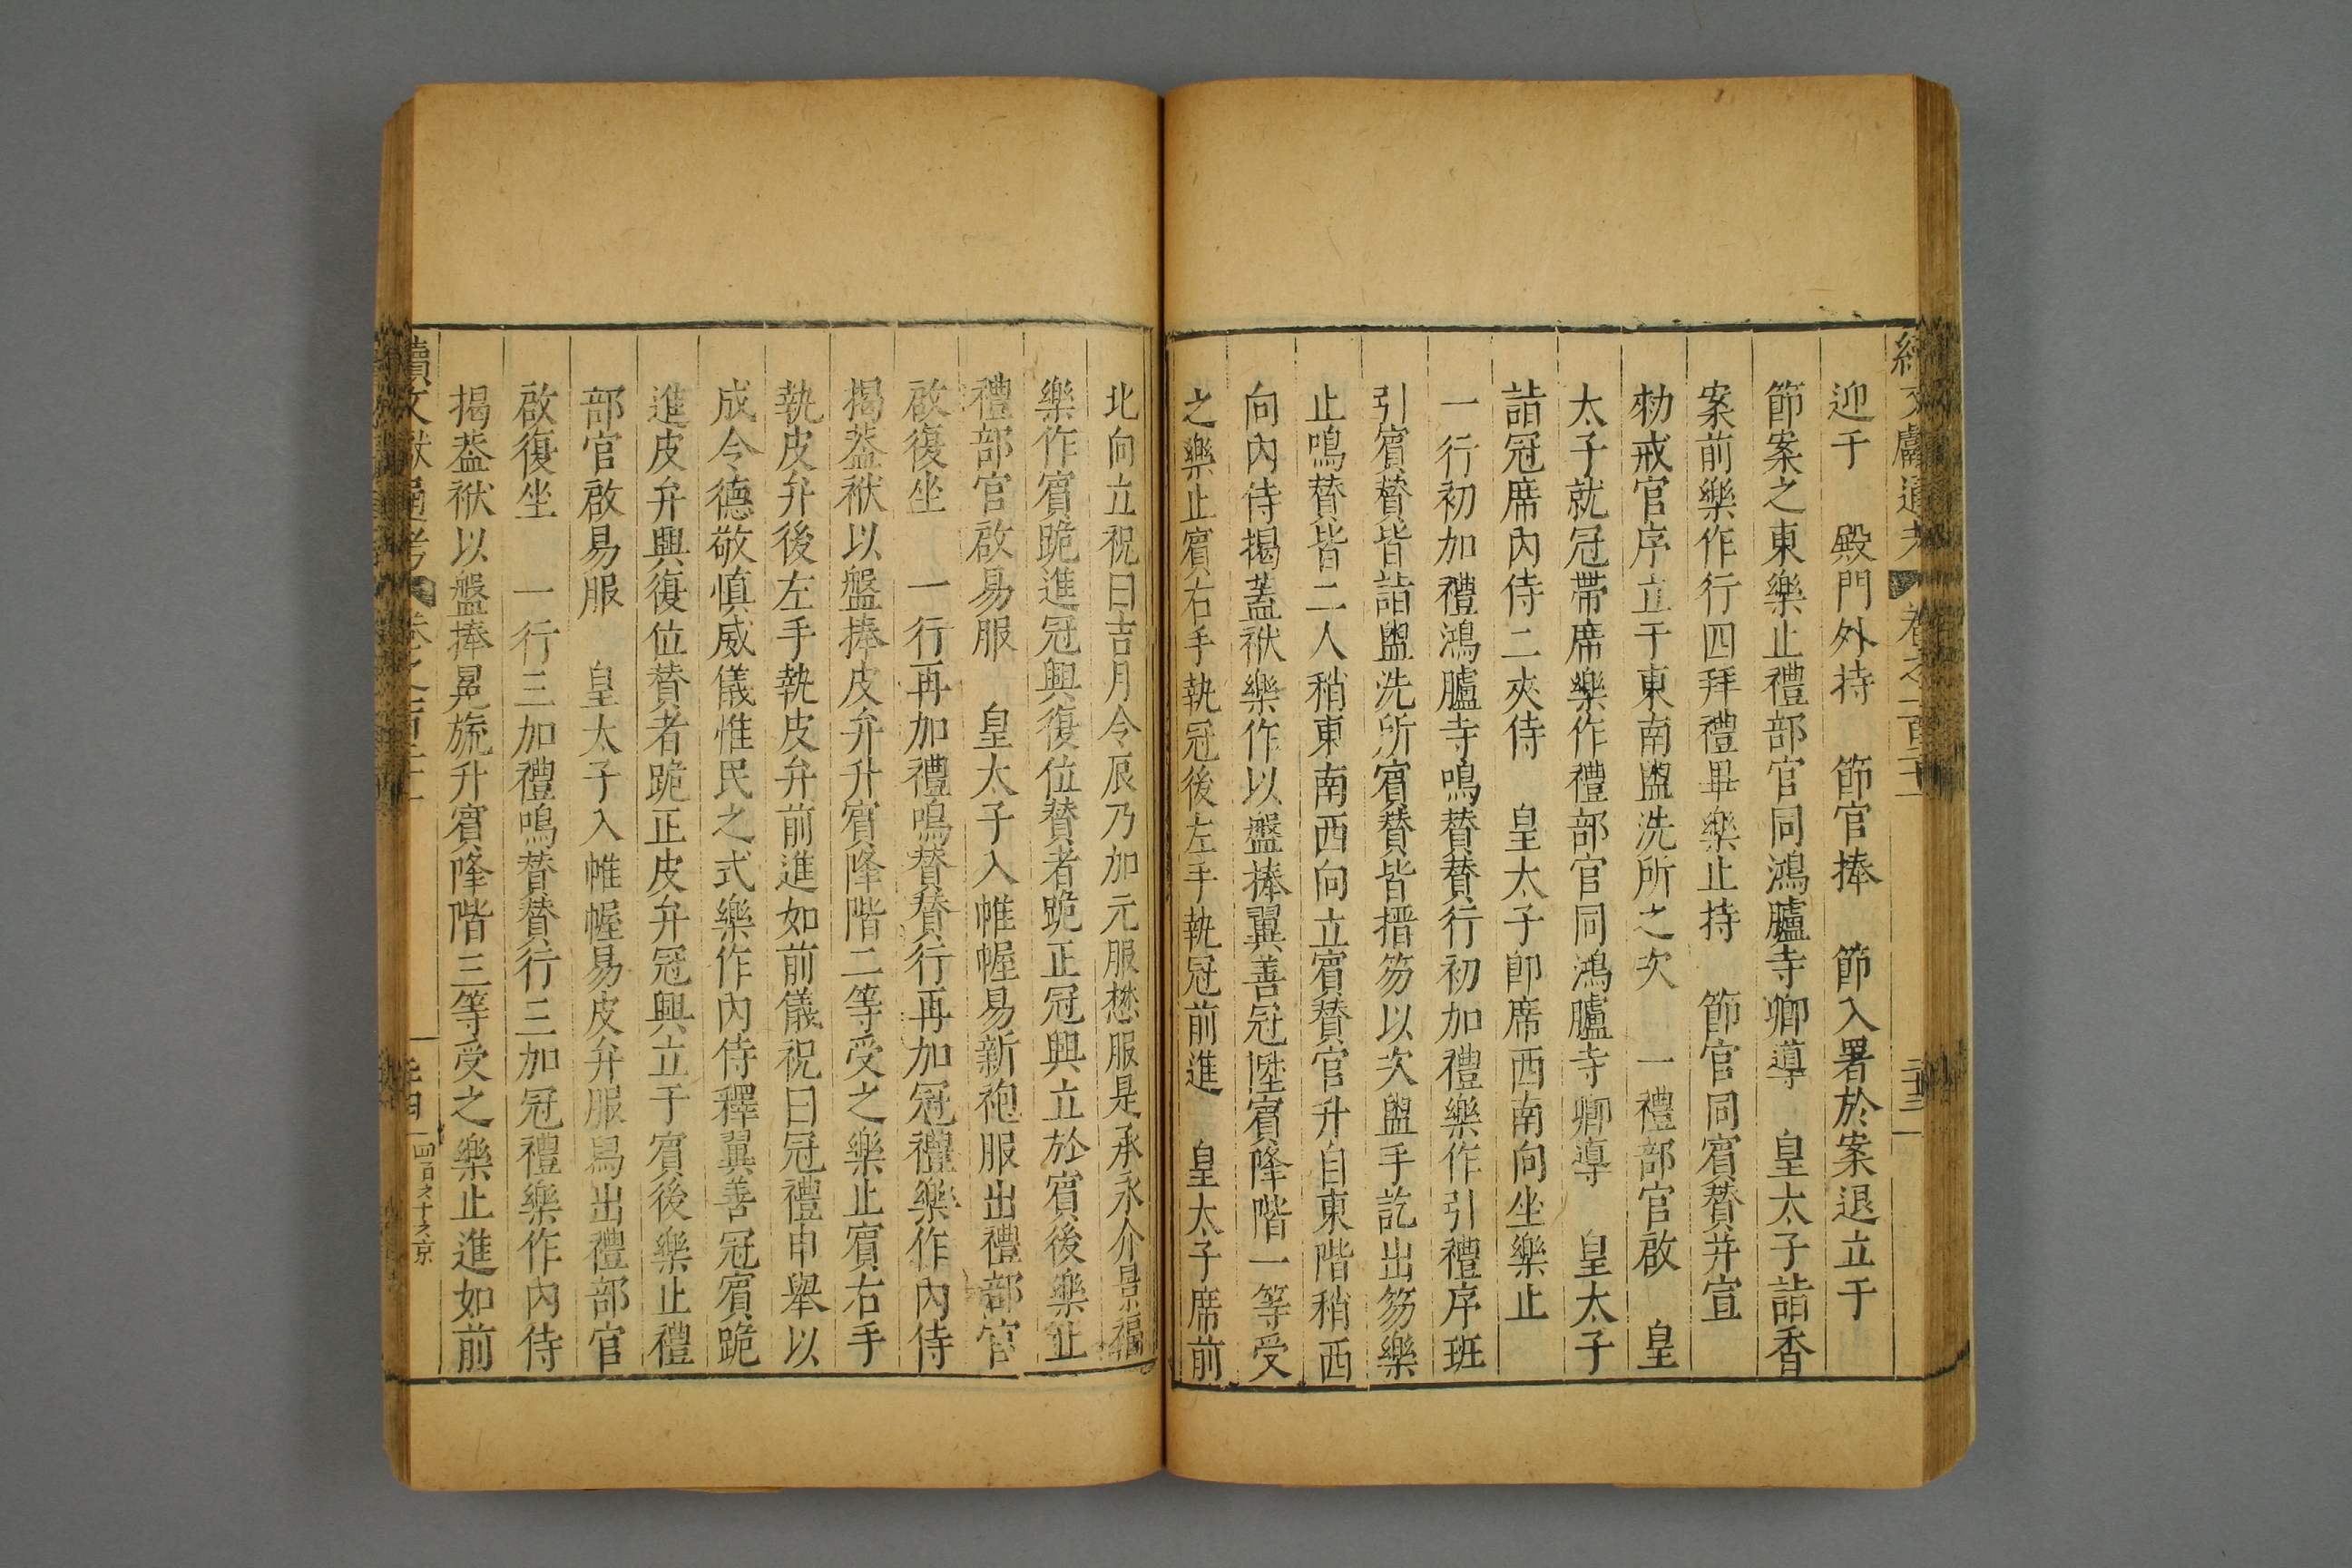 迎于　殿門外持　節官捧　節入署於案退立于
節案之東樂止禮部官同鴻臚寺卿導　皇太子詣香
案前樂作行四拜禮畢樂止持　節官同賓賛并宣
勑戒官序立于東南盥洗所之次　一禮部官啟　皇
太子就冠帶席樂作禮部官同鴻臚寺卿導　皇太子
詣冠席內侍二夾侍　皇太子即席西南向坐樂止
一行初加禮鴻臚寺鳴賛賛行初加禮樂作引禮序班
引賓賛皆詣盥洗所賓賛皆搢笏以次盥手訖出笏樂
止鳴賛皆二人稍東南西向立賓賛官升自東階稍西
向內侍揭蓋袱樂作以盤捧翼善冠陞賓降階一等受
之樂止賓右手執冠後左手執冠前進　皇太子席前
北向立祝曰吉月令辰乃加元服懋服是承永介景福
樂作賓跪進冠興復位賛者跪正冠興立於賓後樂止
禮部官啟易服　皇太子入帷幄易新袍服出禮部官
啟復坐　一行再加禮鳴賛賛行再加冠禮樂作內侍
揭蓋袱以盤捧皮弁升賓降階二等受之樂止賓右手
執皮弁後左手執皮弁前進如前儀祝曰冠禮申舉以
成令德敬慎威儀惟民之式樂作內侍釋翼善冠賓跪
進皮弁興復位賛者跪正皮弁冠興立于賓後樂止禮
部官啟易服　皇太子入帷幄易皮弁服舄出禮部官
啟復坐　一行三加禮鳴賛賛行三加冠禮樂作內侍
揭蓋袱以盤捧冕旒升賓降階三等受之樂止進如前
續文獻通考